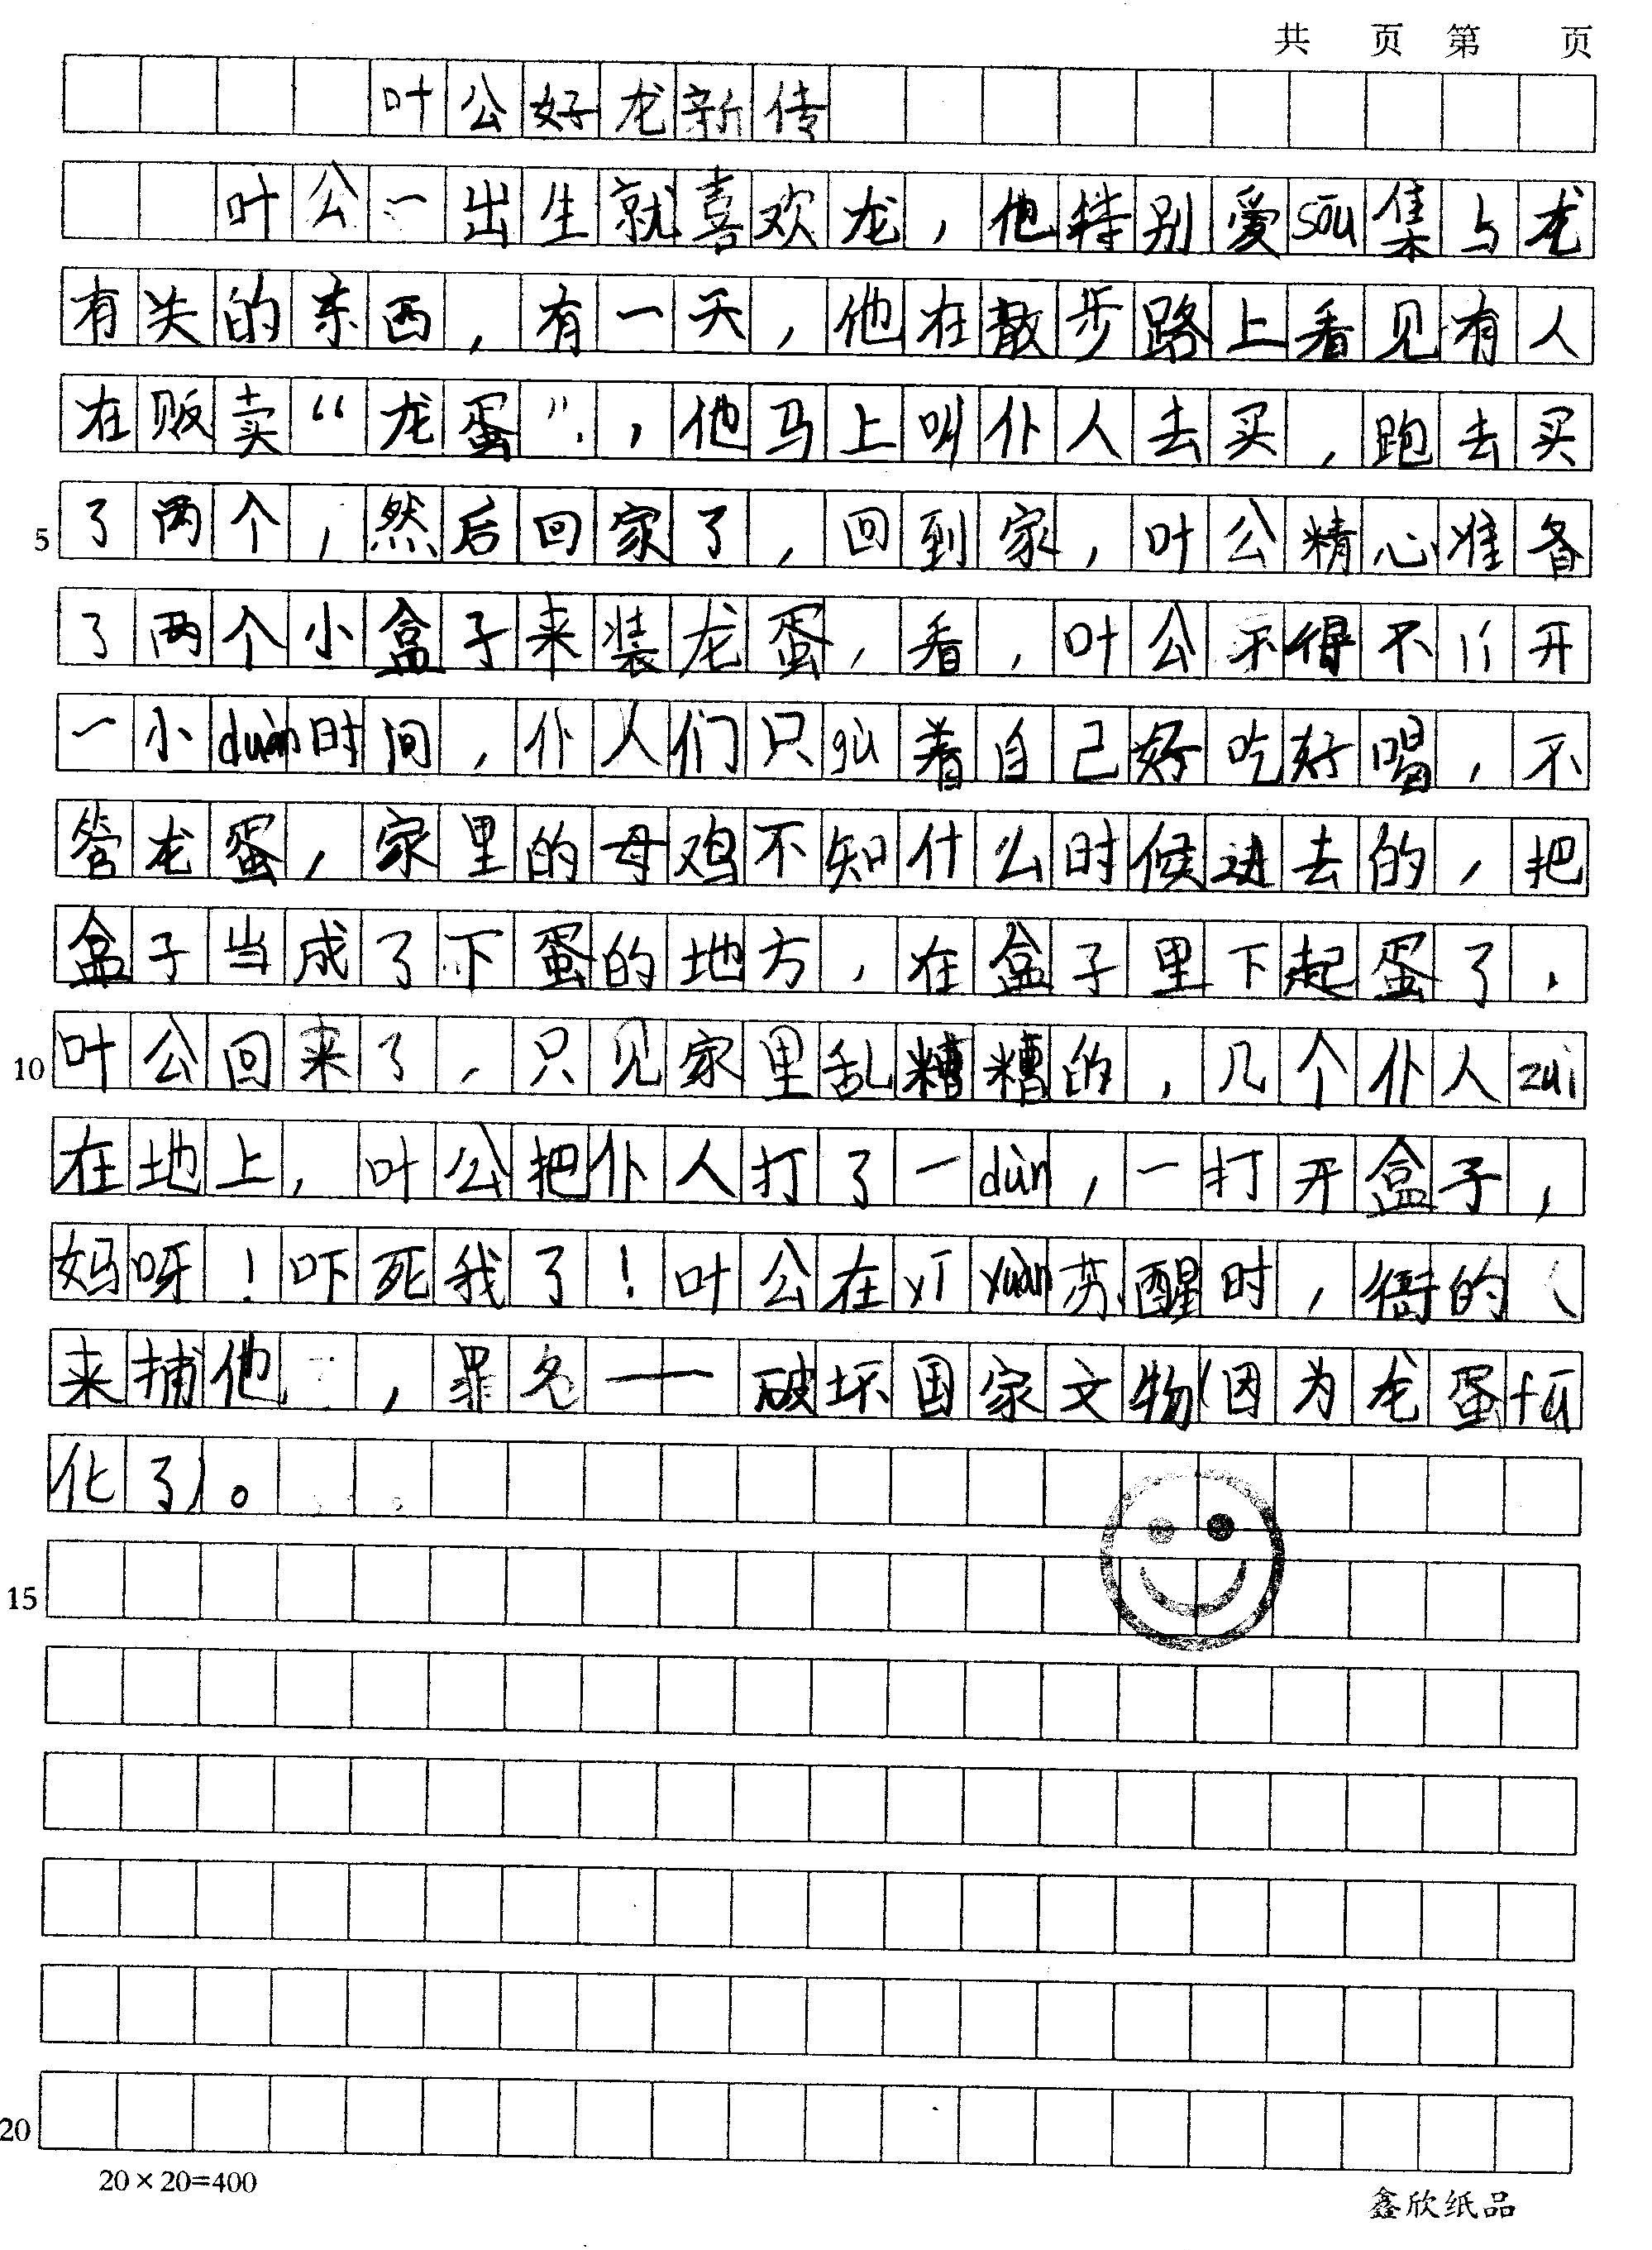 共 页 第 页
叶公好龙新传
叶公一出生就喜欢龙，他特别爱sōu集与龙
有关的东西，有一天，他在散步路上看见有人
在贩卖“龙蛋”，他马上叫仆人去买，跑去买
5 了两个，然后回家了，回到家，叶公精心准备
了两个小盒子来装龙蛋，看，叶公不得不开
一小duàn时间，仆人们只gù着自己好吃好喝，不
管龙蛋，家里的母鸡不知什么时候进去的，把
盒子当成了下蛋的地方，在盒子里下起蛋了，
10 叶公回来了，只见家里乱糟糟的，几个仆人zuì
在地上，叶公把仆人打了一dùn，一打开盒子，
妈呀！吓死我了！叶公在yī yuàn苏醒时，衙的
来捕他，罪名——破坏国家文物(因为龙蛋fū
化了)。
15
20
20×20=400
鑫欣纸品